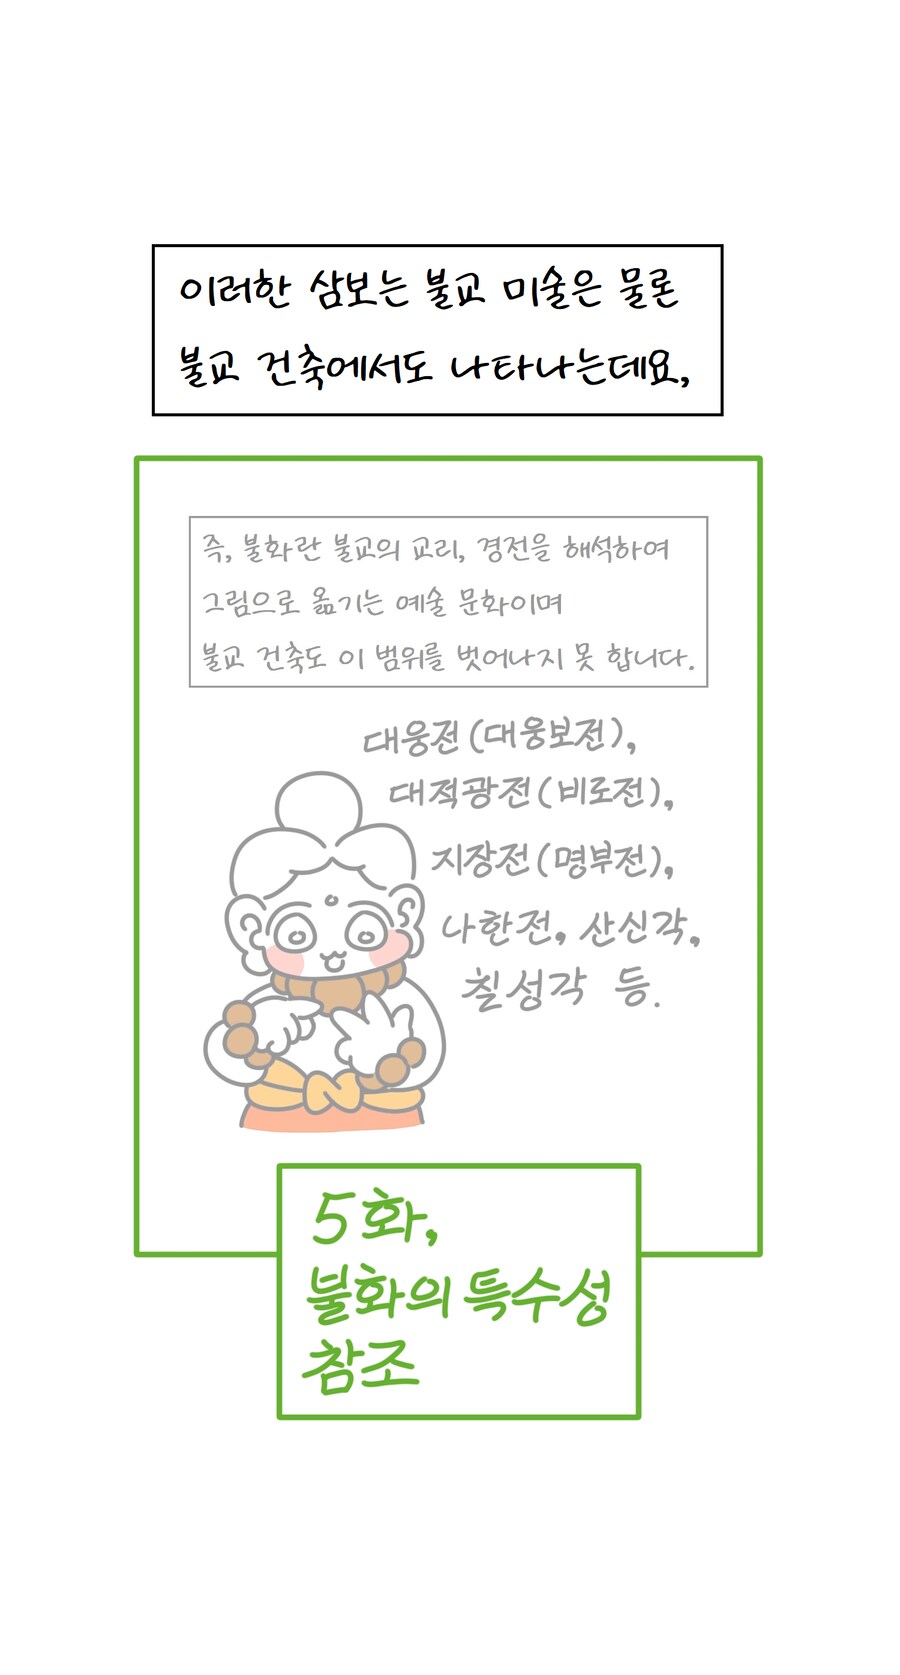 이러한 삼보는 불교 미술은 물론
불교 건축에서도 나타나는데요,
즉, 불화란 불교의 교리, 경전을 해석하여
그림으로 옮기는 예술 문화이며
불교 건축도 이 범위를 벗어나지 못 합니다.
대웅전(대웅보전),
대적광전(비로전),
지장전(명부전),
나한전, 산신각,
칠성각 등.
5화,
불화의 특수성
참조